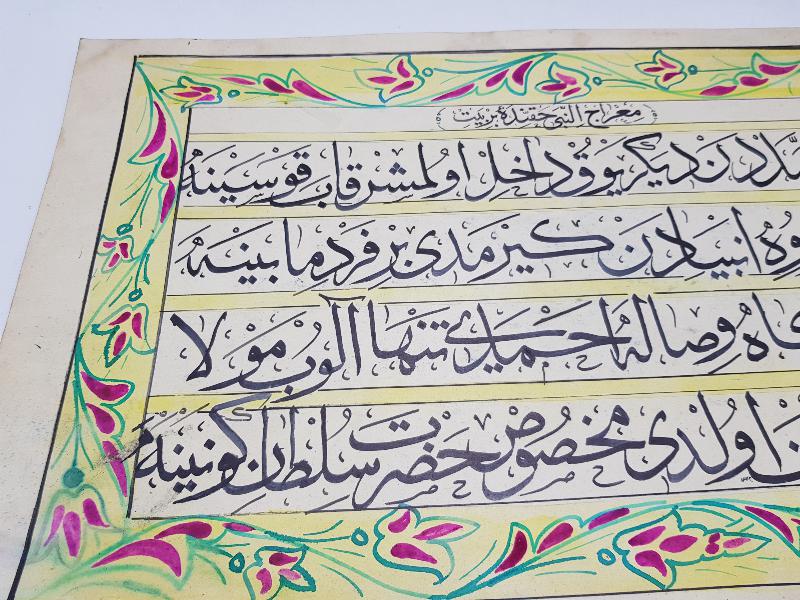 معراج النبی حقنده بر بیت
دن دیگر یوقدر داخل اولمش قاب قوسینه
انبیادن کیرمدی بر فرد مابینه
وصاله احمدی تنها آلوب مولا
اولدی مخصوص حضرت سلطان کونینه